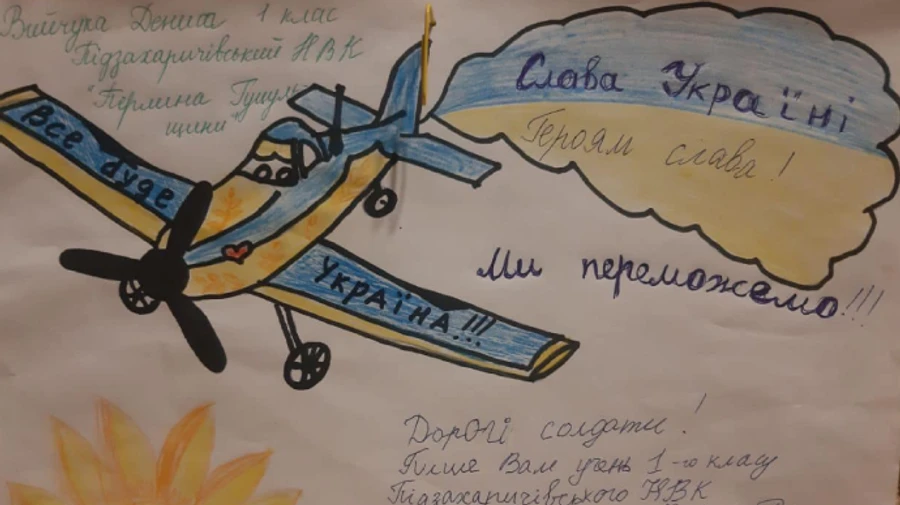 Вийчука Дениса 1 клас
Підзахаричівський НВК
"Перлина Гуцуль-
щини"
Слава Україні
Героям слава!
Все буде
Україна!!!
Ми переможемо!!!
Дорогі солдати!
Пише Вам учень 1-го класу
Підзахаричівського НВК